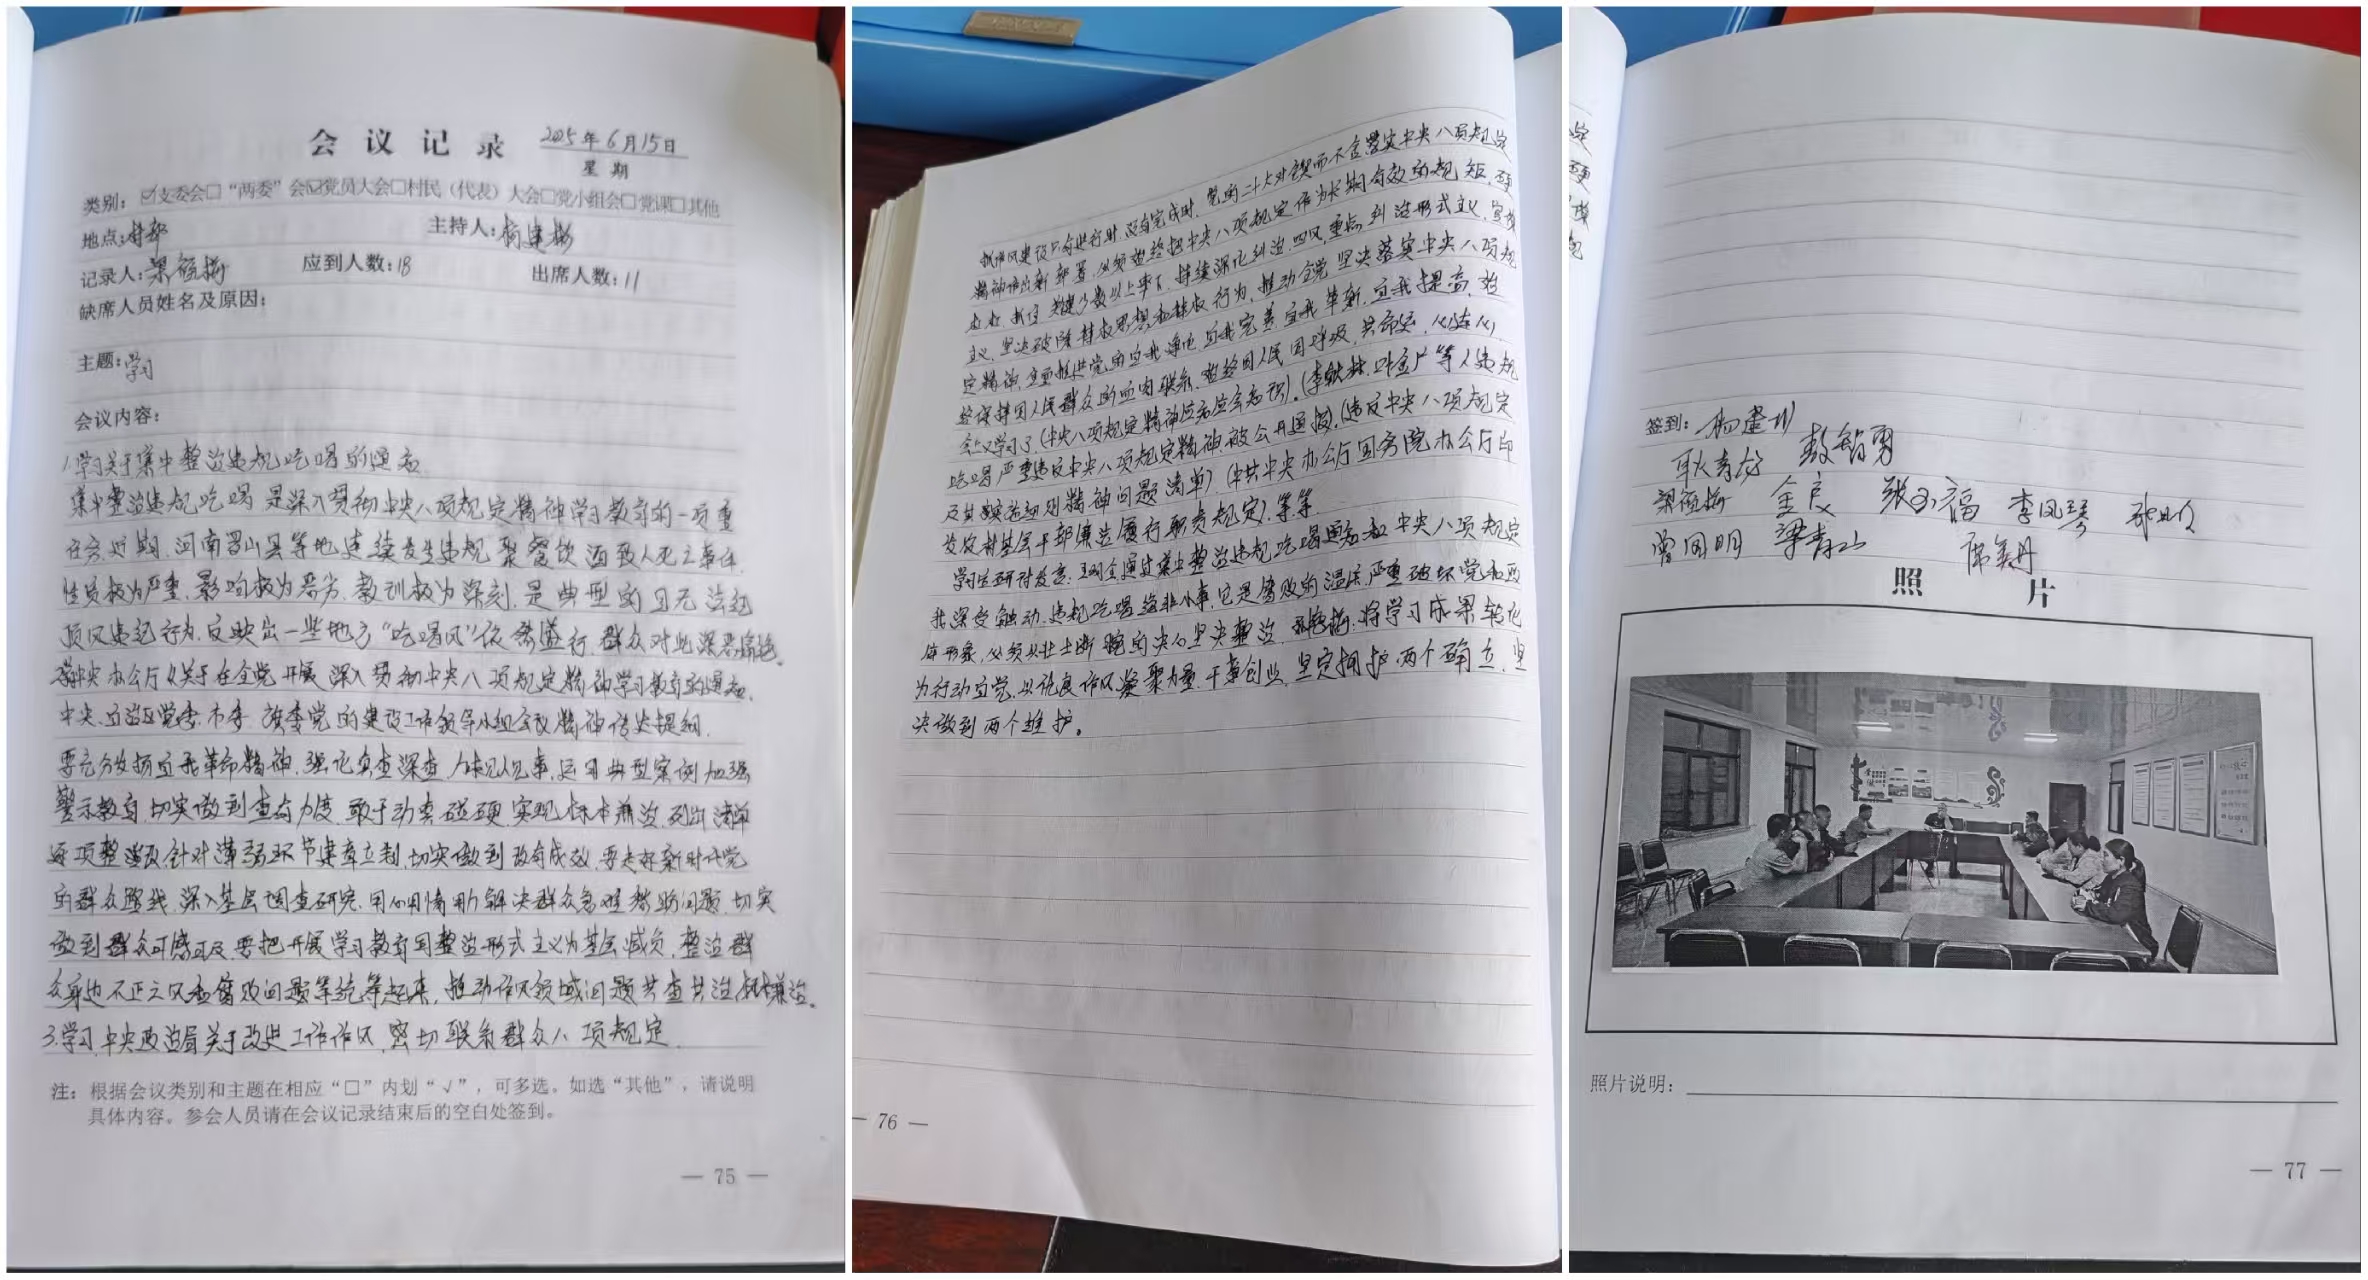 会议记录 2025年6月15日
星期
类别：☑支委会□“两委”会☑党员大会□村民（代表）大会□党小组会□党课□其他
地点：村部 主持人：杨建彬
记录人：梁筱梅 应到人数：18 出席人数：11
缺席人员姓名及原因：
主题：学习
会议内容：
1.学习关于集中整治违规吃喝的通知
集中整治违规吃喝是深入贯彻中央八项规定精神学习教育的一项重
任务.近期.河南罗山县等地连续发生违规聚餐饮酒致人死亡事件.
性质极为严重.影响极为恶劣.教训极为深刻.是典型的目无法纪
顶风违纪行为.反映出一些地方“吃喝风”依然盛行.群众对此深恶痛绝.
中央办公厅《关于在全党开展深入贯彻中央八项规定精神学习教育的通知.
中央.自治区党委.市委.旗委党的建设工作领导小组会议精神传达提纲.
要充分发扬自我革命精神.强化真查深查.人.见事.运用典型案例加强
警示教育.切实做到查有力度.敢于动真碰硬.实现标本兼治.列出清单
逐项整改.针对薄弱环节建章立制.切实做到改有成效.要走好新时代党
的群众路线.深入基层调查研究.用心用情用力解决群众急难愁盼问题.切实
做到群众可感可及.要把开展学习教育同整治形式主义为基层减负.整治群
众身边不正之风和腐败问题等统筹起来，推动作风领域问题共查共治.兼治.
3.学习.中央政治局关于改进工作作风.密切联系群众八项规定.
注：根据会议类别和主题在相应“□”内划“√”，可多选。如选“其他”，请说明
具体内容。参会人员请在会议记录结束后的空白处签到。
— 75 —
抓作风建设只有进行时.没有完成时.党的二十大对锲而不舍落实中央八项规定
精神作出新部署.必须始终把中央八项规定作为长期有效的规矩.
抓住关键少数以上率下.持续深化纠治四风.重点纠治形式主义.官僚
主义.坚决破除特权思想和特权行为.推动全党坚决落实中央八项规
定精神.推进党的自我净化.自我完善.自我革新.自我提高.始
终保持同人民群众的血肉联系.始终同人民同呼吸.共命运.心连心.
会议学习了(中央八项规定精神应知应会知识).(李献林.叶金广等人违规
吃喝严重违反中央八项规定精神被公开通报).(违反中央八项规定
及其实施细则精神问题清单)(中共中央办公厅国务院办公厅印
发农村基层干部廉洁履行职责规定).等等
学习生研讨发言：通过集中整治违规吃喝通知和中央八项规定
我深受触动.违规吃喝绝非小事.它是腐败的温床.严重破坏党和政
府形象.必须以壮士断腕的决心坚决整治.梁筱梅：将学习成果转化
为行动自觉.以优良作风凝聚力量.干事创业.坚定拥护两个确立.坚
决做到两个维护。
— 76 —
签到：
敖智勇
梁筱梅 金良 张万福 李凤琴
曾国明 梁青山 席美丹
照片
照片说明：
— 77 —